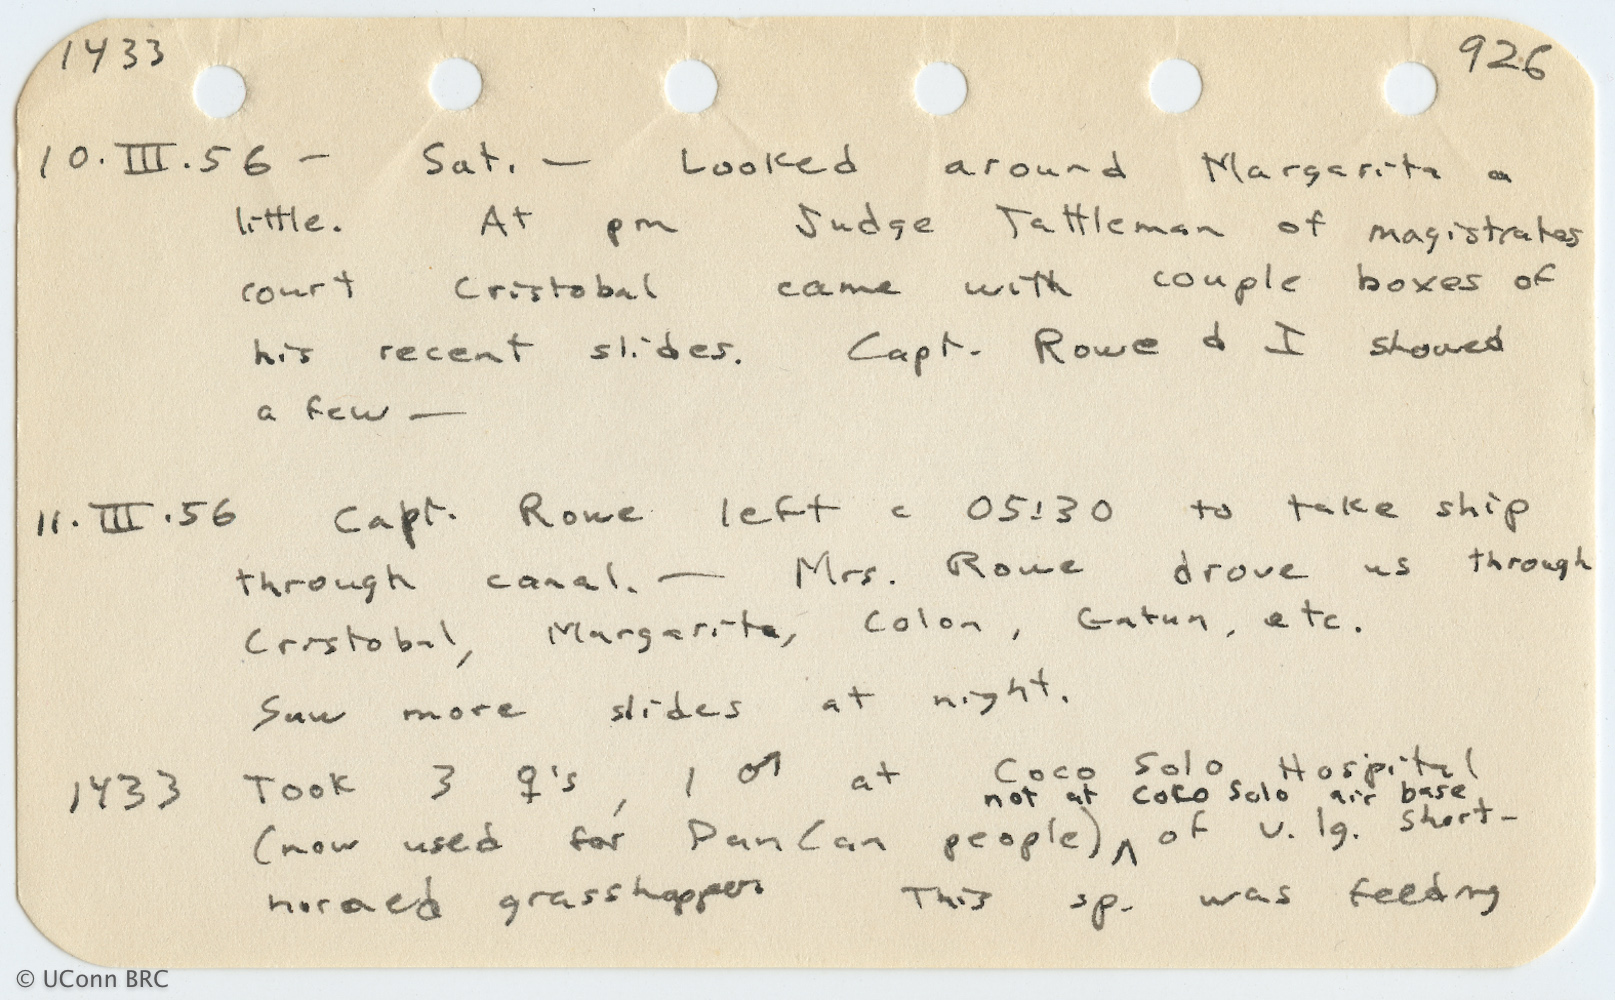 1433 926
10.III.56 — Sat. — Looked around Margarita a
little. At pm Judge Tattleman of magistrates
court Cristobal came with couple boxes of
his recent slides. Capt. Rowe & I showed
a few —
11.III.56 Capt. Rowe left c 05:30 to take ship
through canal. — Mrs. Rowe drove us through
Cristobal, Margarita, Colon, Gatun, etc.
Saw more slides at night.
1433 Took 3 ♀'s, 1 ♂ at Coco Solo Hospital
not at Coco Solo air base
(now used for PanCan people) ^ of v. lg. short-
horned grasshopper This sp. was feeding
© UConn BRC